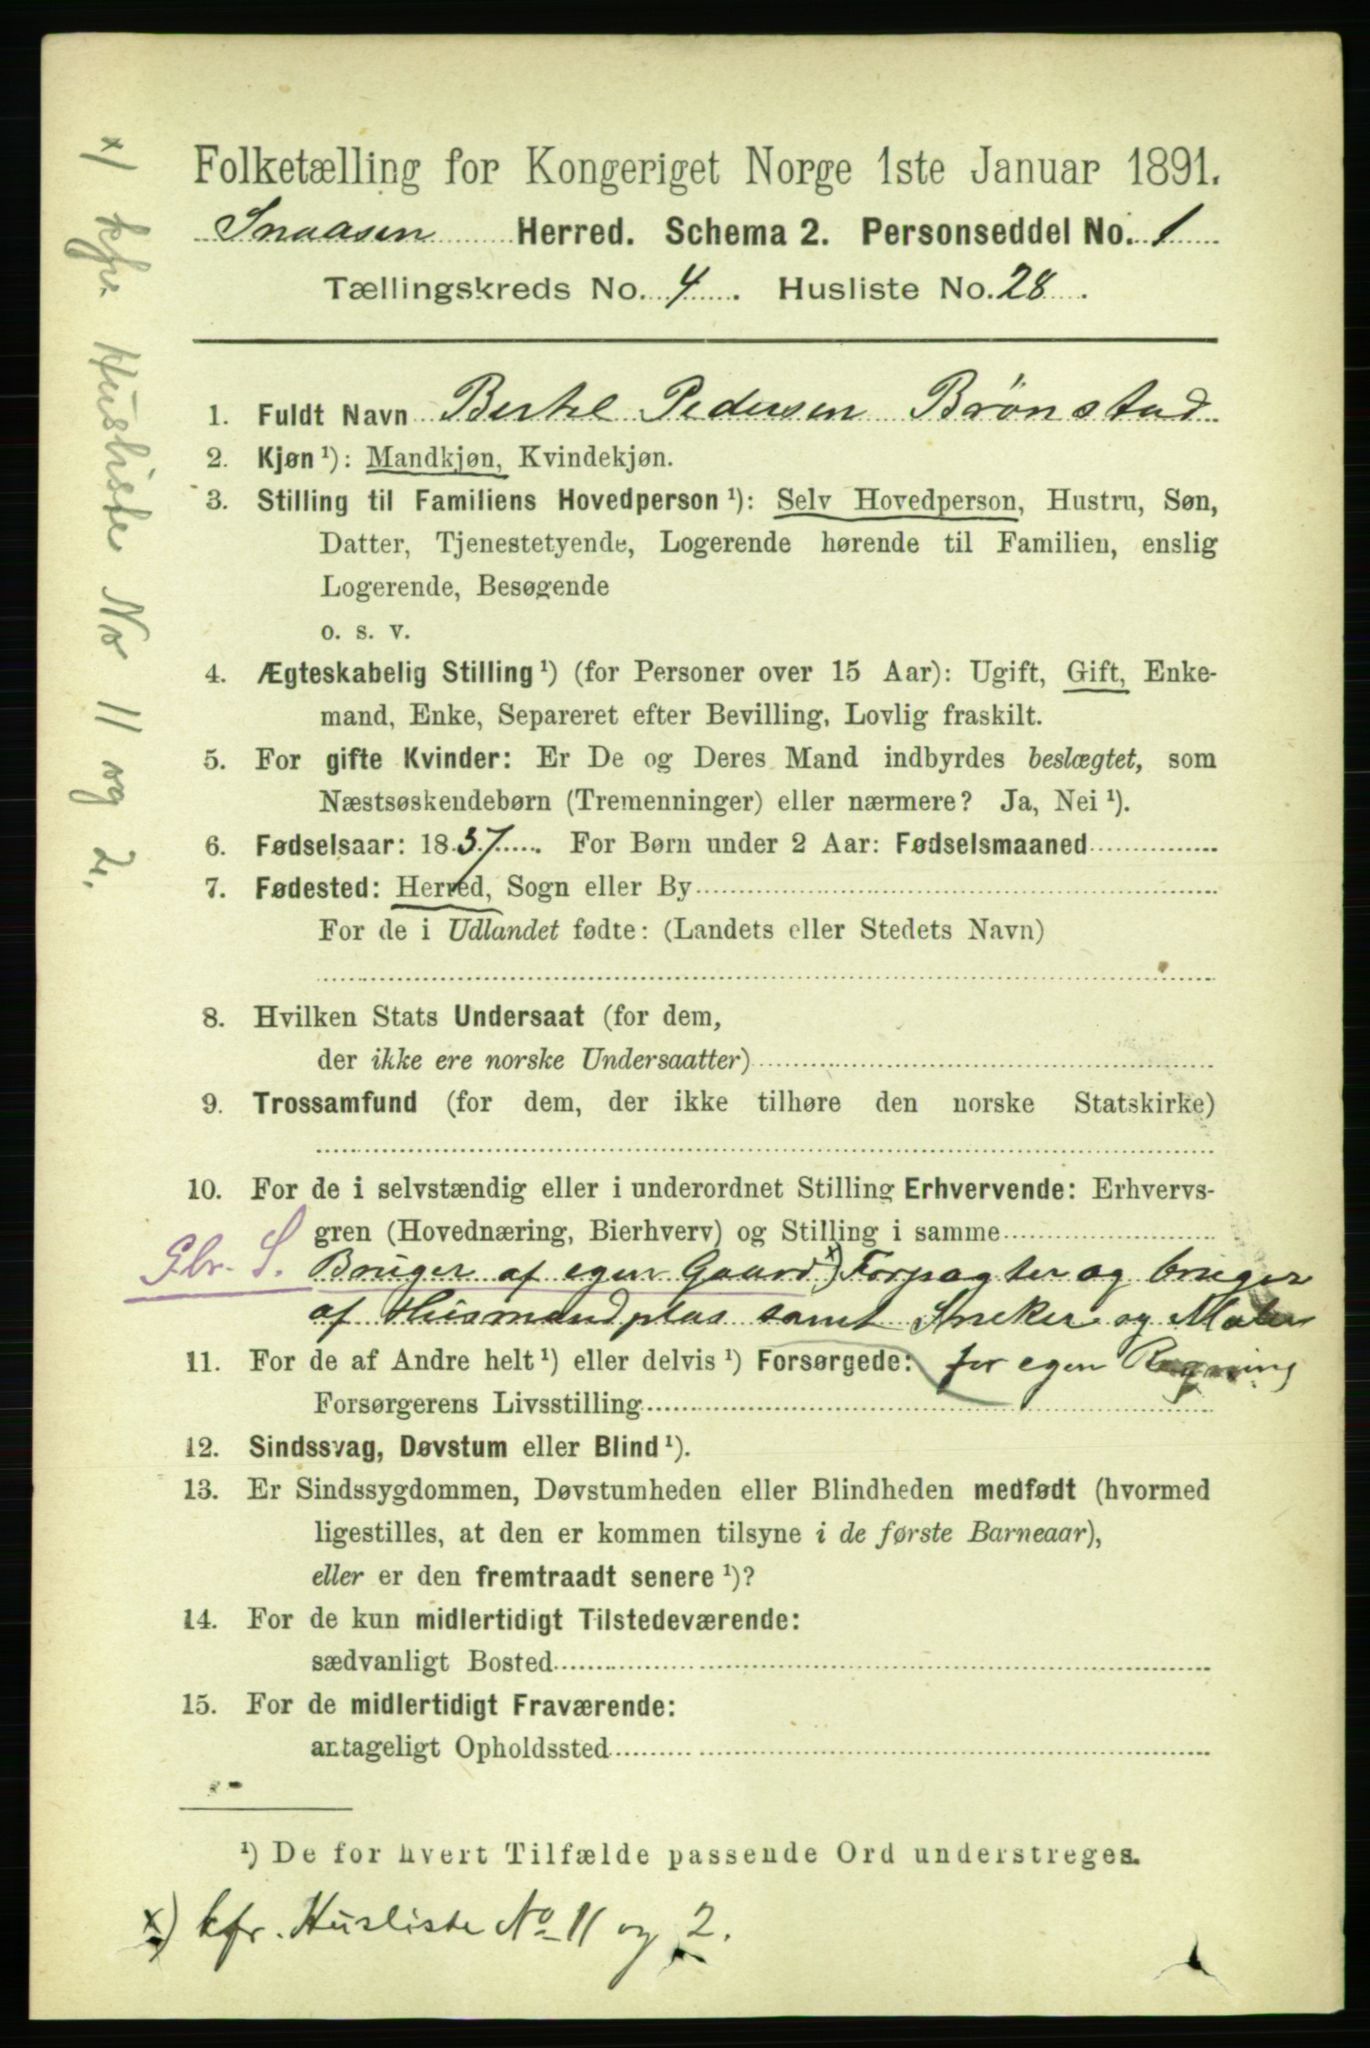 Folketælling for Kongeriget Norge 1ste Januar 1891.
Snaasen Herred. Schema 2. Personseddel No. 1
Tællingskreds No. 4. Husliste No. 28.
1. Fuldt Navn Bertel Pedersen Brønstad
2. Kjøn ¹): Mandkjøn, Kvindekjøn.
3. Stilling til Familiens Hovedperson ¹): Selv Hovedperson, Hustru, Søn,
Datter, Tjenestetyende, Logerende hørende til Familien, enslig
Logerende, Besøgende
o. s. v.
4. Ægteskabelig Stilling ¹) (for Personer over 15 Aar): Ugift, Gift, Enke-
mand, Enke, Separeret efter Bevilling, Lovlig fraskilt.
5. For gifte Kvinder: Er De og Deres Mand indbyrdes beslægtet, som
Næstsøskendebørn (Tremenninger) eller nærmere? Ja, Nei ¹).
6. Fødselsaar: 1837. For Børn under 2 Aar: Fødselsmaaned
7. Fødested: Herred, Sogn eller By
For de i Udlandet fødte: (Landets eller Stedets Navn)
8. Hvilken Stats Undersaat (for dem,
der ikke ere norske Undersaatter)
9. Trossamfund (for dem, der ikke tilhøre den norske Statskirke)
10. For de i selvstændig eller i underordnet Stilling Erhvervende: Erhvervs-
gren (Hovednæring, Bierhverv) og Stilling i samme
Gbr. S. Bruger af egen Gaard x) Forpagter og bruger
af Husmandplas samt Sneker og Maler
11. For de af Andre helt ¹) eller delvis ¹) Forsørgede: for egen Regning
Forsørgerens Livsstilling
12. Sindssvag, Døvstum eller Blind ¹).
13. Er Sindssygdommen, Døvstumheden eller Blindheden medfødt (hvormed
ligestilles, at den er kommen tilsyne i de første Barneaar),
eller er den fremtraadt senere ¹)?
14. For de kun midlertidigt Tilstedeværende:
sædvanligt Bosted
15. For de midlertidigt Fraværende:
antageligt Opholdssted
¹) De for hvert Tilfælde passende Ord understreges.
x) kfr. Husliste No 11 og 2.
x) kfr. Husliste No 11 og 2.